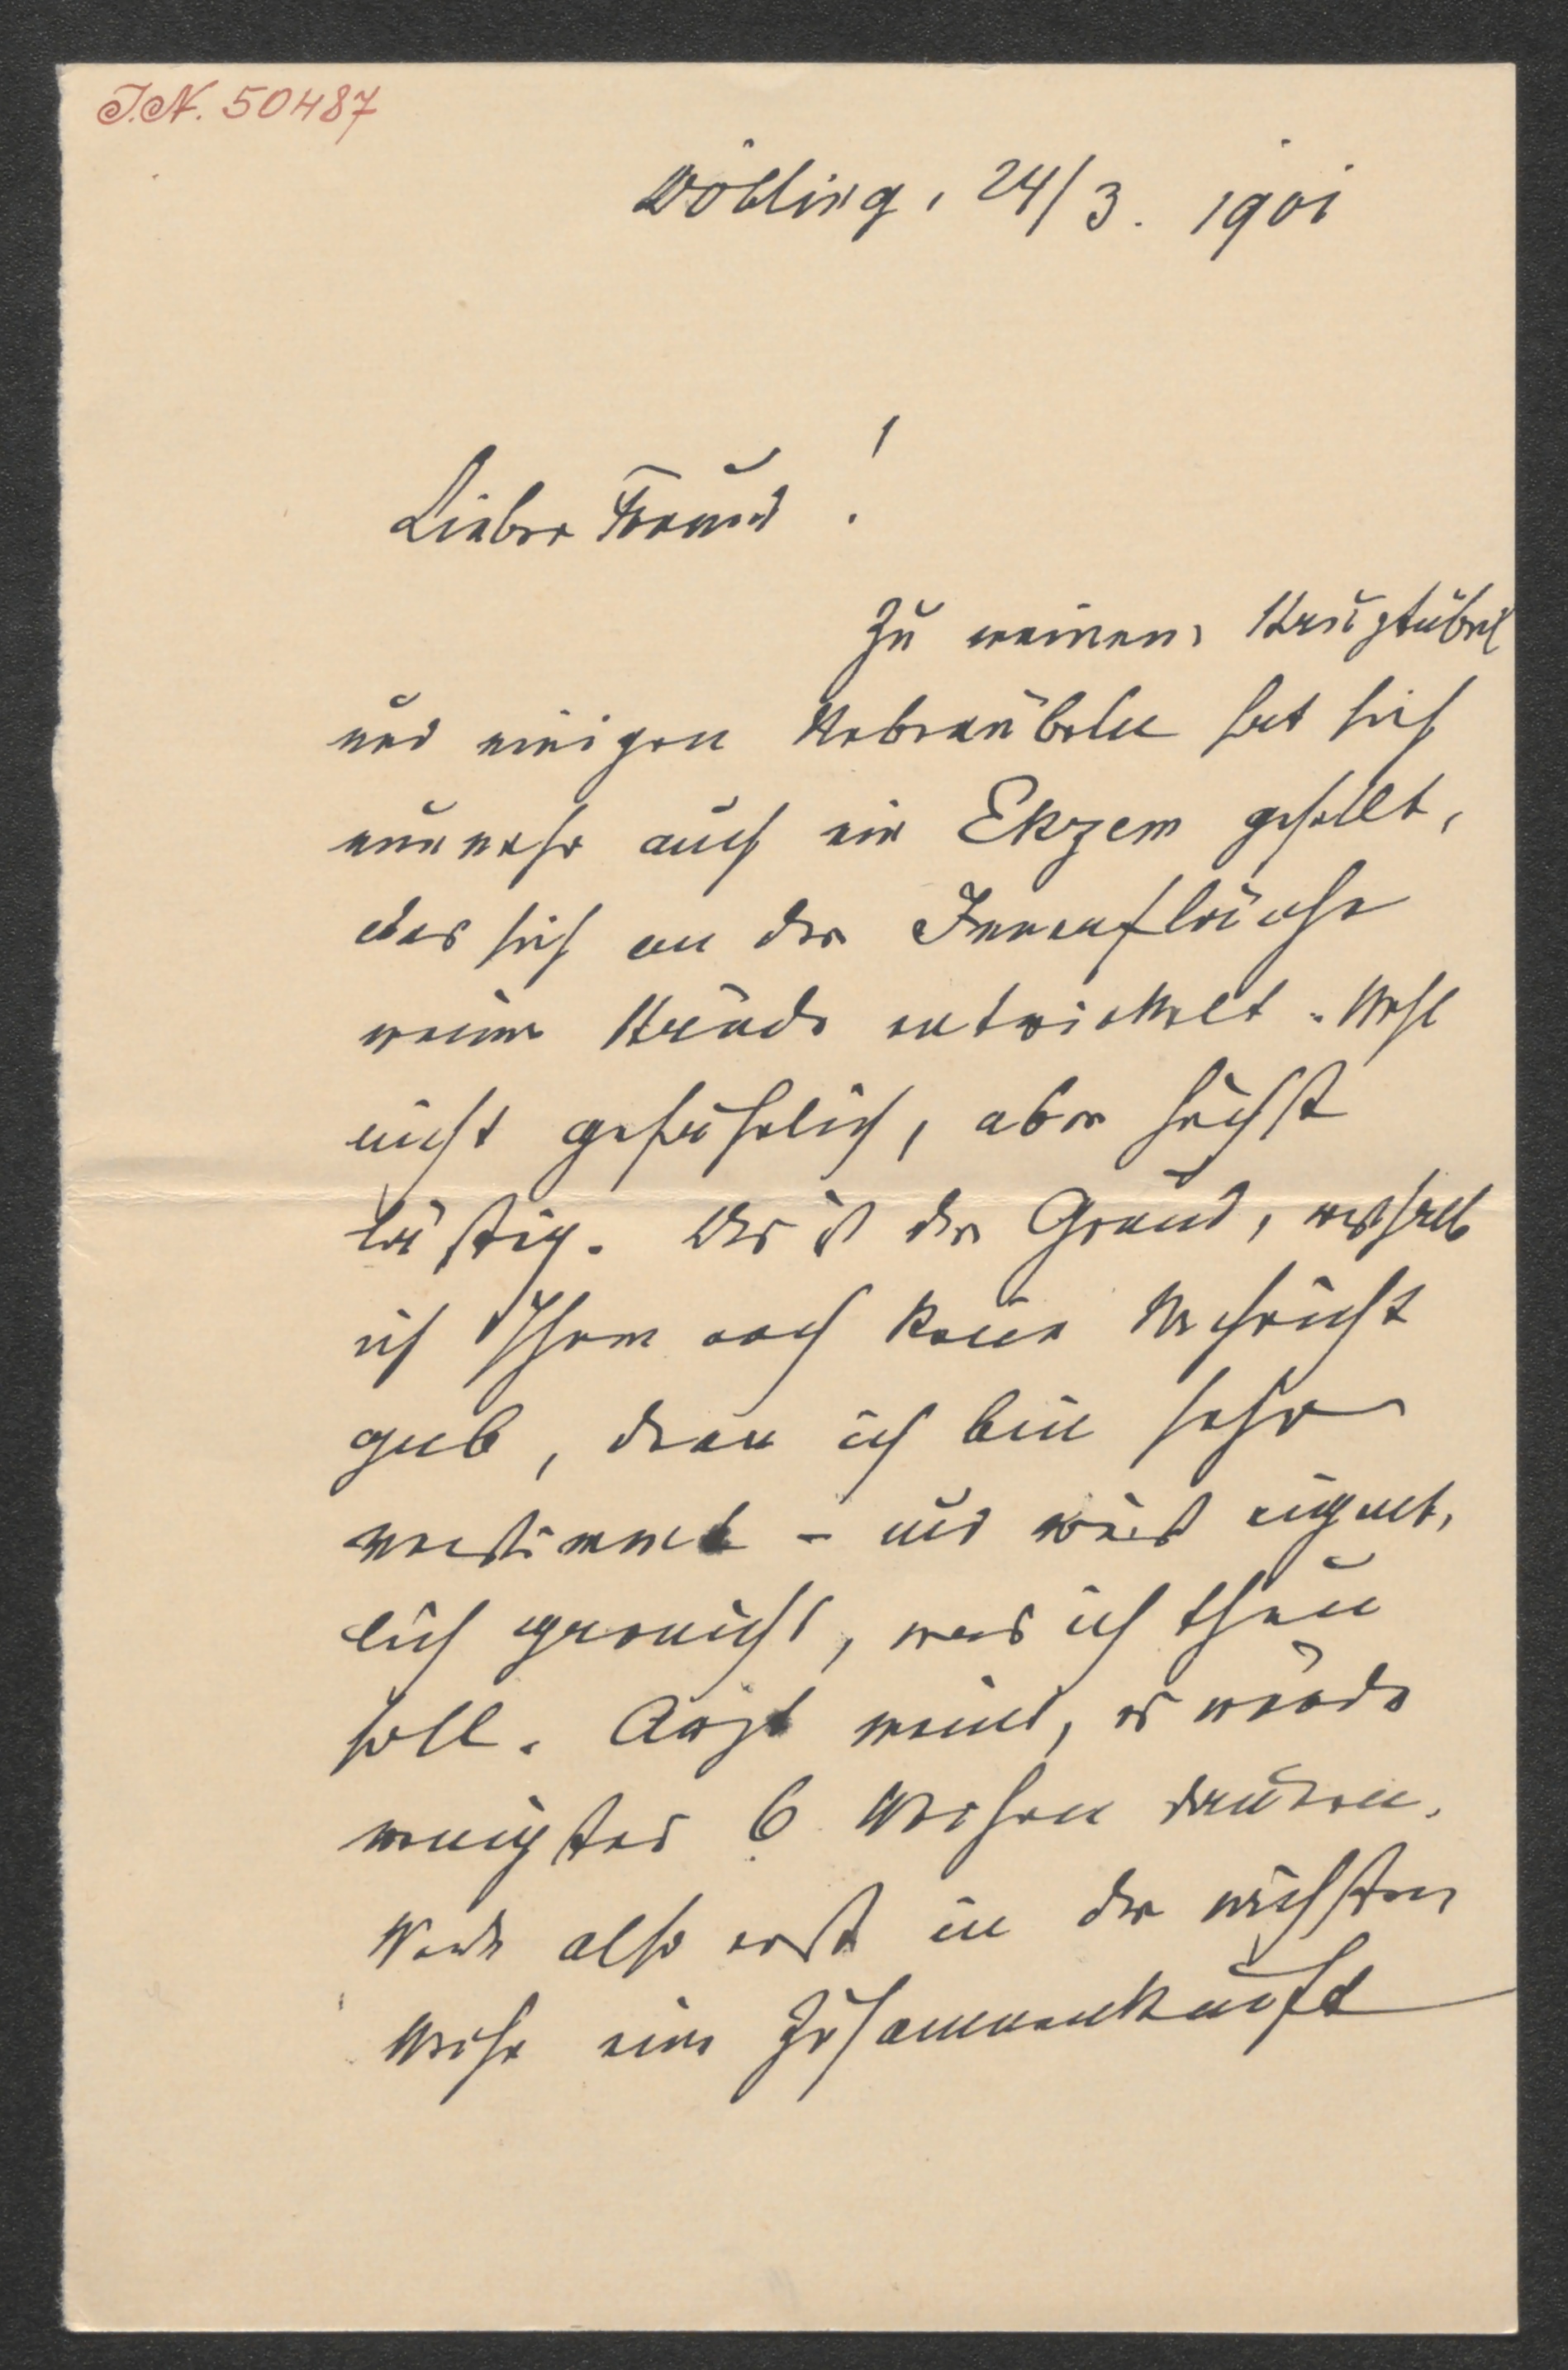 J.N. 50487
Döbling, 24/3. 1901
Lieber Freund!
Zu meinem Hauptübel
und einigen Nebenübeln hat sich
nunmehr auch ein Ekzem gesellt,
das sich an der Innenfläche
meiner Hände entwickelt. Wohl
nicht gefährlich, aber höchst
lästig. Das ist der Grund, weshalb
ich Ihnen noch keine Nachricht
gab, denn ich bin sehr
verstimmt – und weiß eigent-
lich garnicht, was ich thun
soll. Arzt meint, es würde
wenigstens 6 Wochen dauern.
Werde also erst in der nächsten
Woche eine Zusammenkunft